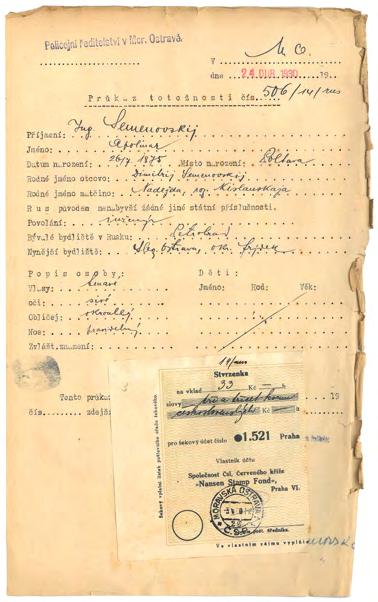 Policejní ředitelství v Mor. Ostravě.
V M O.
dne 24 ÚNR 1930 19
Průkaz totožnosti čís. 506/14/rus
Příjmení: Ing. Semenovskij
Jméno: Apolinar
Datum narození: 26/7. 1875 Místo narození: Poltava
Rodné jméno otcovo: Dimitrij Semenovskij
Rodné jméno matčino: Nadejda, roz.
Rus původem nenabyvší žádné jiné státní příslušnosti.
Povolání: inženýr
Bývalé bydliště v Rusku: Petrohrad
Nynější bydliště: Slez. Ostrava,
Popis osoby: Děti:
Vlasy: tmavé Jméno: Rod: Věk:
oči: sivé
Obličej: okrouhlý
Nos: pravidelný
Zvlášt. znamení:
Tento průkaz 19
čís. zdejší
14/rus
Stvrzenka
na vklad 33 Kč — h
slovy
československých Kč — h
pro šekový účet číslo 1.521 Praha
Vlastník účtu
Společnost Čsl. Červeného kříže
»Nansen Stamp Fond«,
Praha VI.
MORAVSKÁ OSTRAVA
Č.S.P.
Ve vlastním zájmu vyplň